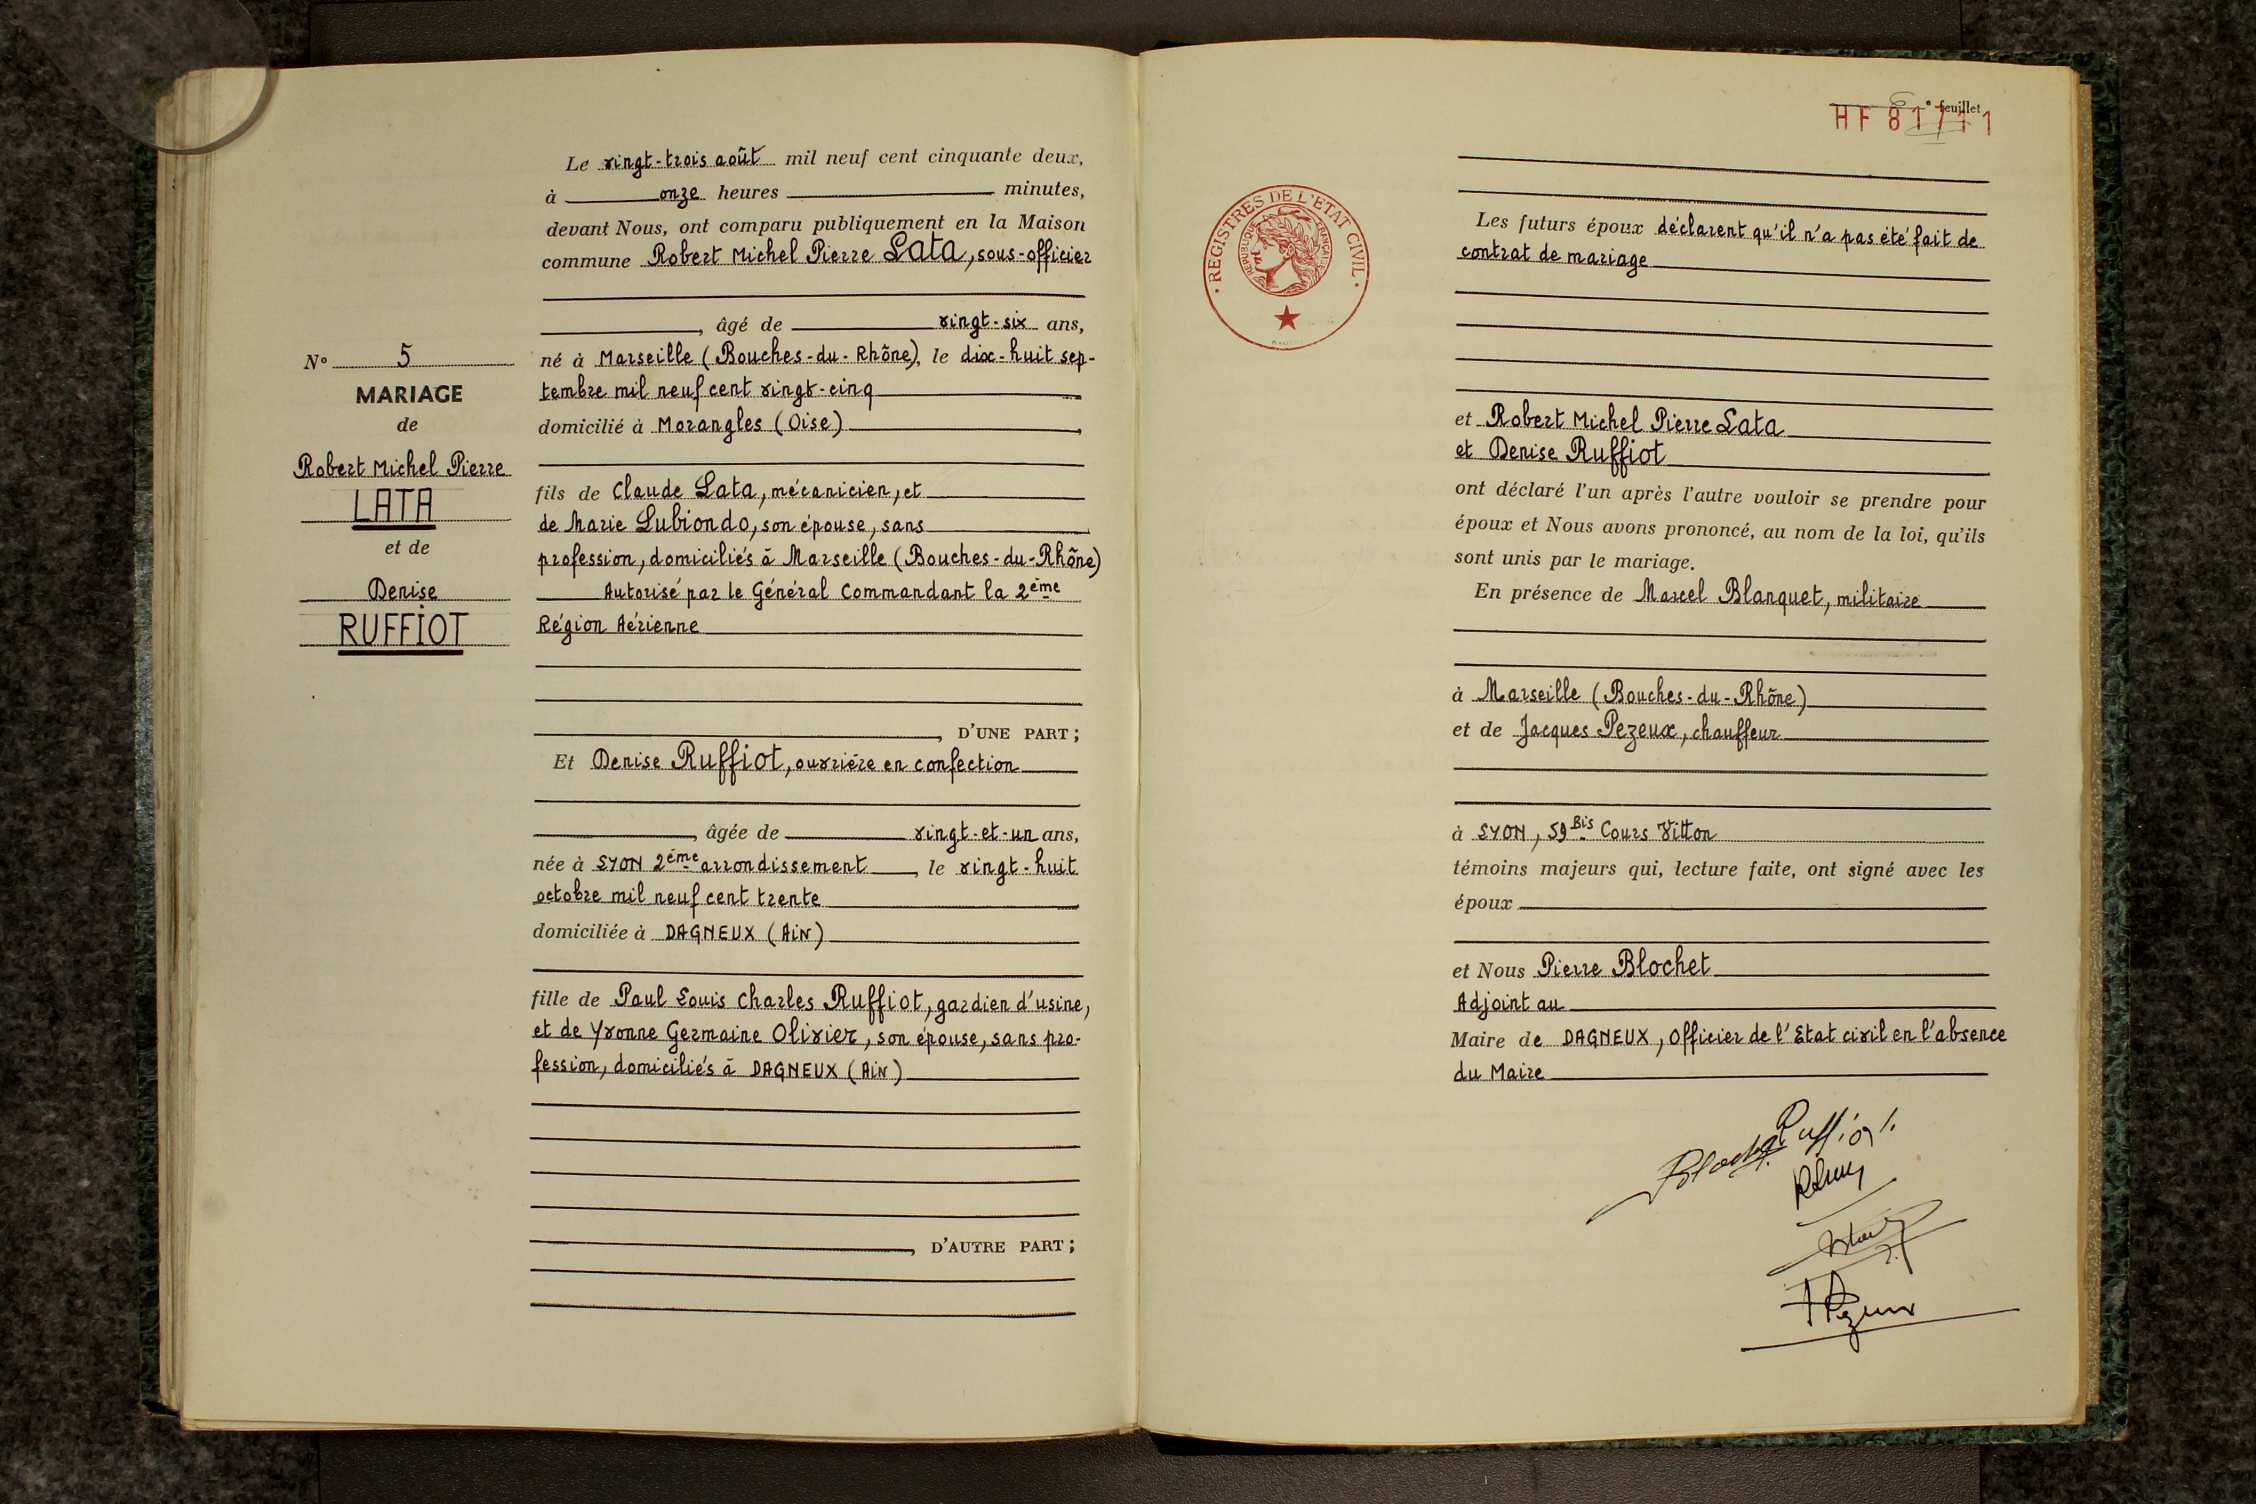 Le vingt-trois août mil neuf cent cinquante deux,
à onze heures minutes,
devant Nous, ont comparu publiquement en la Maison
commune Robert Michel Pierre Lata, sous-officier
, âgé de vingt-six ans,
né à Marseille (Bouches-du-Rhône), le dix-huit sep-
tembre mil neuf cent vingt-cinq
domicilié à Morangles (Oise)
fils de Claude Lata, mécanicien, et
de Marie Lubiondo, son épouse, sans
profession, domiciliés à Marseille (Bouches-du-Rhône)
Autorisé par le Général Commandant la 2ème
Région Aérienne
, D'UNE PART ;
Et Denise Ruffiot, ouvrière en confection
, âgée de vingt-et-un ans,
née à LYON 2ème arrondissement, le vingt-huit
octobre mil neuf cent trente
domiciliée à DAGNEUX (Ain)
fille de Paul Louis Charles Ruffiot, gardien d'usine,
et de Yvonne Germaine Olivier, son épouse, sans pro-
fession, domiciliés à DAGNEUX (Ain)
, D'AUTRE PART ;
N° 5
MARIAGE
de
Robert Michel Pierre
LATA
et de
Denise
RUFFIOT
° feuillet
HF 81711
REGISTRES DE L'ETAT CIVIL
REPUBLIQUE FRANÇAISE
Les futurs époux déclarent qu'il n'a pas été fait de
contrat de mariage
et Robert Michel Pierre Lata
et Denise Ruffiot
ont déclaré l'un après l'autre vouloir se prendre pour
époux et Nous avons prononcé, au nom de la loi, qu'ils
sont unis par le mariage.
En présence de Marcel Blanquet, militaire
à Marseille (Bouches-du-Rhône)
et de Jacques Pezeux, chauffeur
à LYON, 59 Bis Cours Vitton
témoins majeurs qui, lecture faite, ont signé avec les
époux
et Nous Pierre Blochet
Adjoint au
Maire de DAGNEUX, Officier de l'Etat civil en l'absence
du Maire
Ruffiot
Blochet
Pezeux